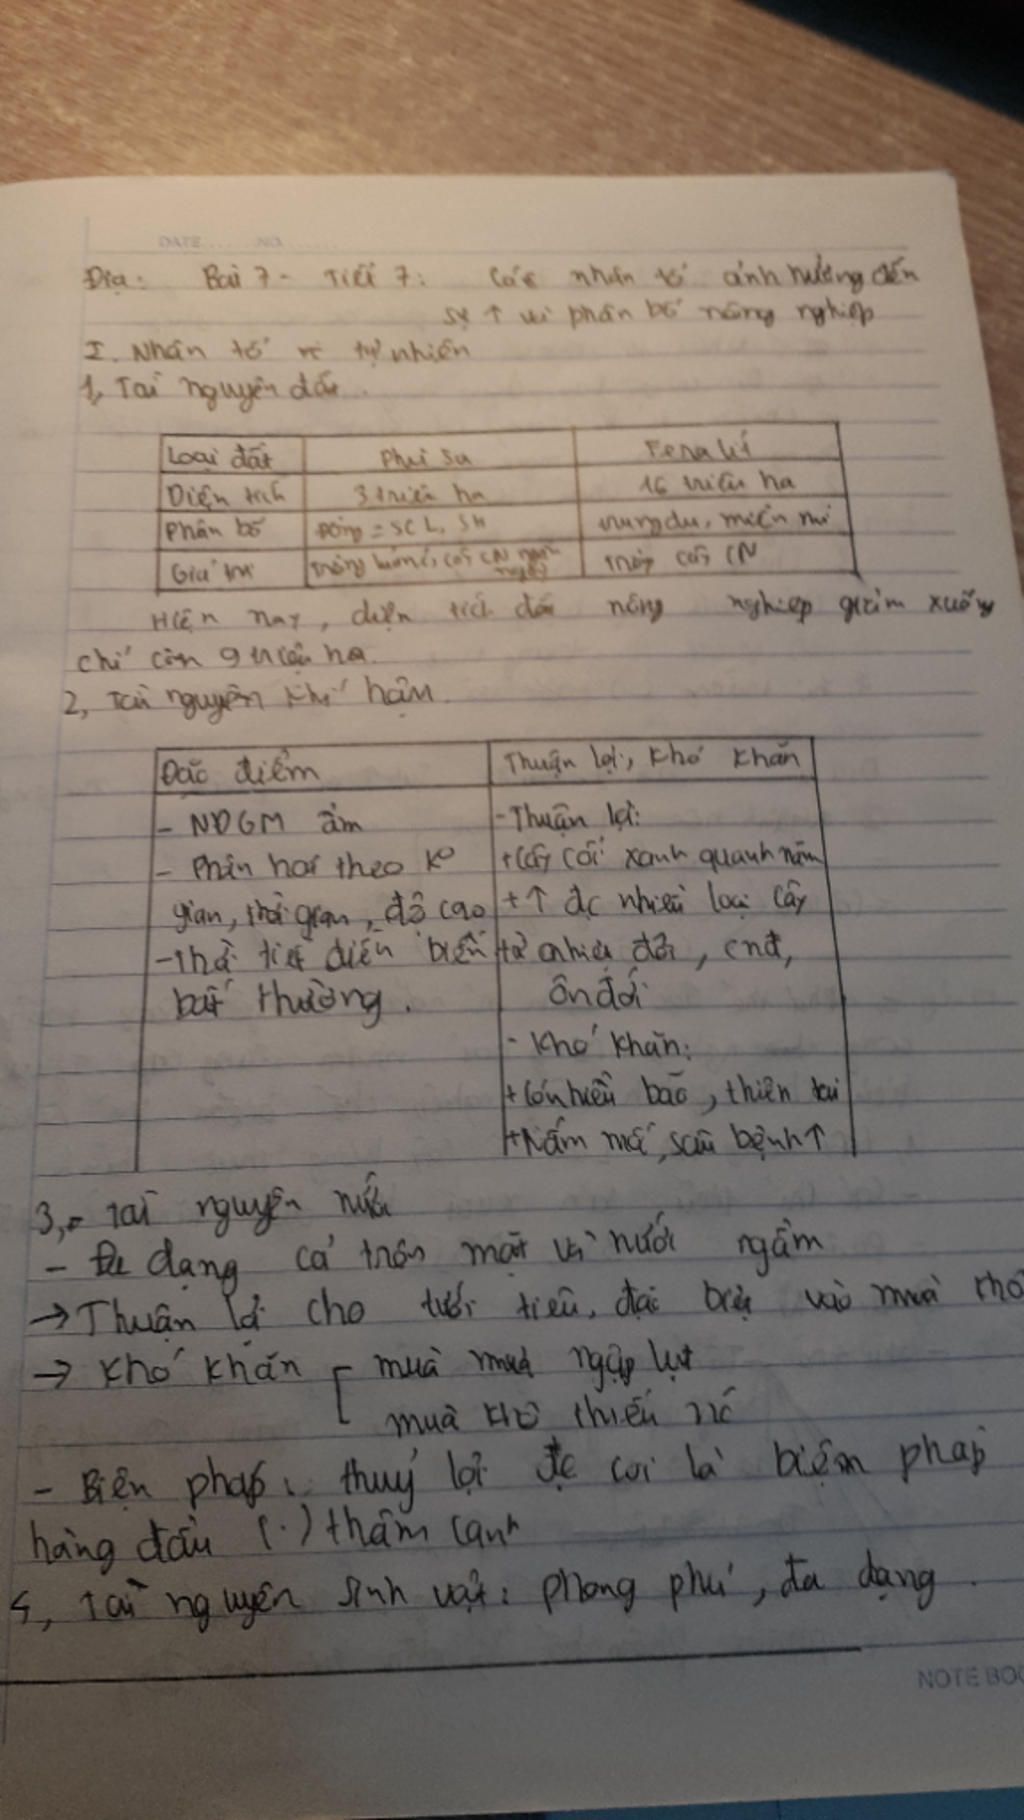 DATE...... NO.......
Địa: Bài 7 - Tiết 7: Các nhân tố ảnh hưởng đến
sự ↑ và phân bố nông nghiệp
I. Nhân tố tự nhiên
1, Tài nguyên đất.
Loại đất Phù Sa Feralít
Diện tích 3 triệu ha 16 triệu ha
Phân bố Đồng = SCL, SH trung du, miền núi
Giá trị trồng cây CN trồng cây CN
Hiện nay, diện tích đất nông nghiệp giảm xuống
chỉ còn 9 triệu ha.
2, Tài nguyên khí hậu.
Đặc điểm Thuận lợi, khó khăn
- NĐGM ẩm
- Phân hoá theo ko
gian, thời gian, độ cao
- Thời tiết diễn biến
bất thường.
- Thuận lợi:
+ Cây cối xanh quanh năm
+ ↑ đc nhiều loại cây
từ nhiệt đới, cnđ,
ôn đới
- Khó khăn:
+ Có nhiều bão, thiên tai
+ Nấm mốc, sâu bệnh ↑
3, Tài nguyên nước
- Đa dạng cả trên mặt và nước ngầm
→ Thuận lợi cho tưới tiêu, đặc biệt vào mùa khô
→ Khó khăn [ mùa mưa ngập lụt
mùa khô thiếu nc
- Biện pháp: thuỷ lợi đc coi là biện pháp
hàng đầu (.) thâm canh
4, Tài nguyên sinh vật: phong phú, đa dạng.
NOTE BOO